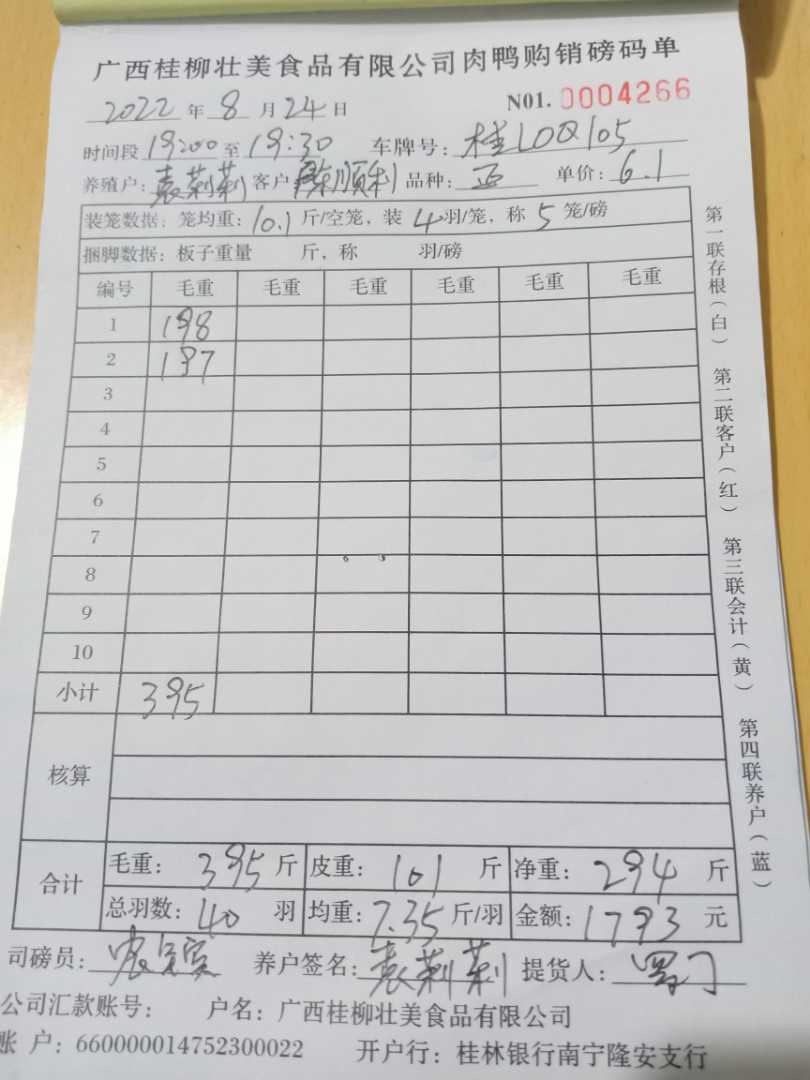 广西桂柳壮美食品有限公司肉鸭购销磅码单
2022 年 8 月 24 日 N01. 0004266
时间段 19:00 至 19:30 车牌号: 桂LDQ105
养殖户: 袁莉莉 客户 陈顺利 品种: 正 单价: 6.1
装笼数据: 笼均重: 10.1 斤/空笼, 装 4 羽/笼, 称 5 笼/磅
捆脚数据: 板子重量 斤, 称 羽/磅
编号 毛重 毛重 毛重 毛重 毛重 毛重
1 198
2 197
3
4
5
6
7
8
9
10
小计 395
核算
合计 毛重: 395 斤 皮重: 101 斤 净重: 294 斤
总羽数: 40 羽 均重: 7.35 斤/羽 金额: 1793 元
司磅员: 养户签名: 袁莉莉 提货人:
公司汇款账号: 户名: 广西桂柳壮美食品有限公司
账 户: 660000014752300022 开户行: 桂林银行南宁隆安支行
第一联存根(白) 第二联客户(红) 第三联会计(黄) 第四联养户(蓝)